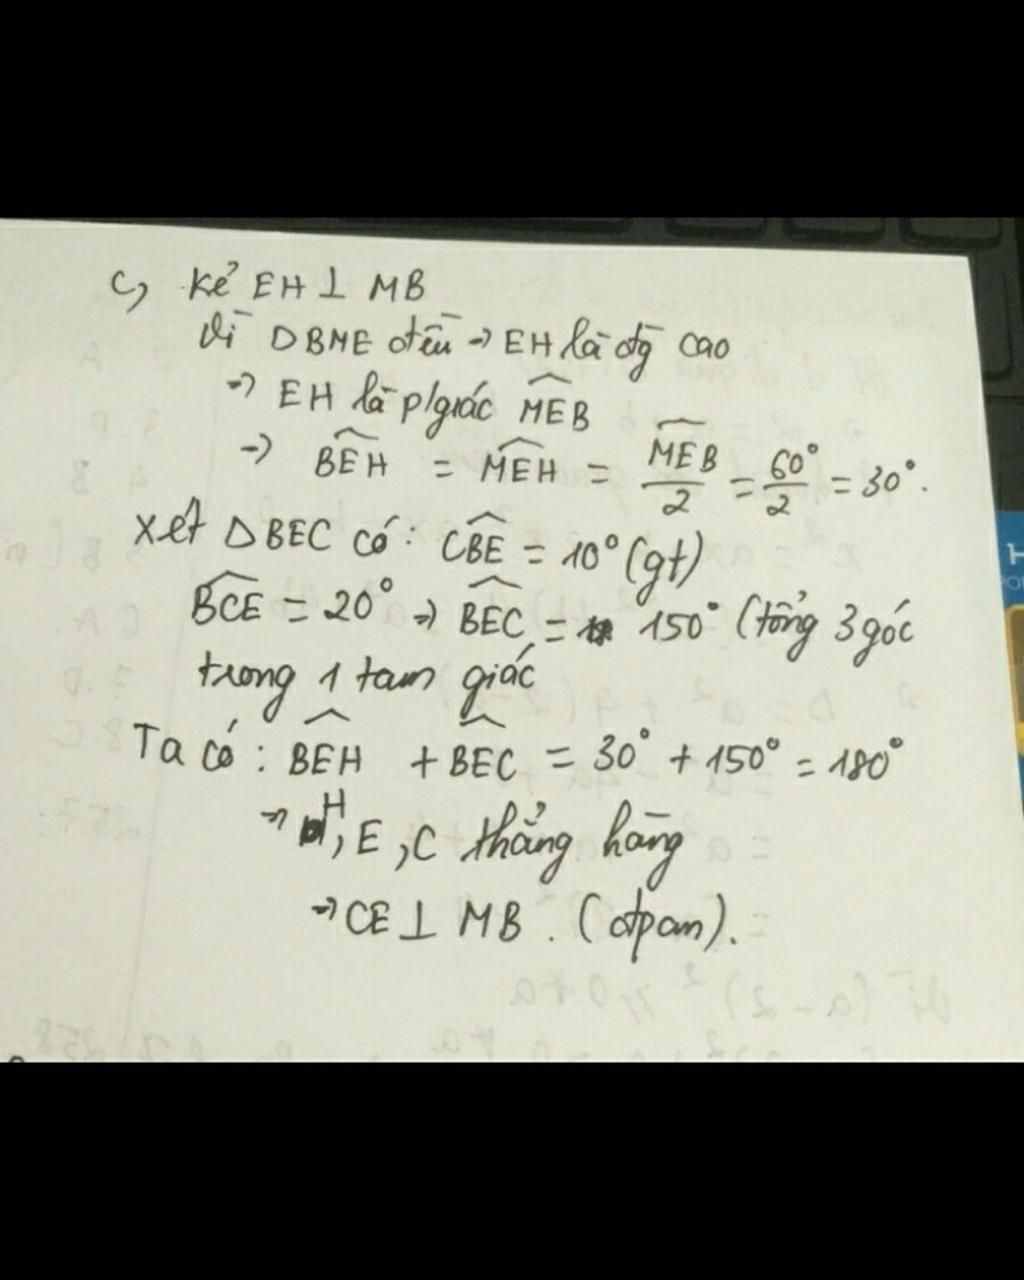 c, Kẻ EH ⊥ MB
Vì ΔBME đều → EH là đg cao
→ EH là p/giác MEB
→ BEH = MEH = MEB/2 = 60°/2 = 30°.
Xét ΔBEC có: CBE = 10° (gt)
BCE = 20° → BEC = 150° (tổng 3 góc
trong 1 tam giác
Ta có: BEH + BEC = 30° + 150° = 180°
→ H, E, C thẳng hàng
→ CE ⊥ MB. (đpcm).